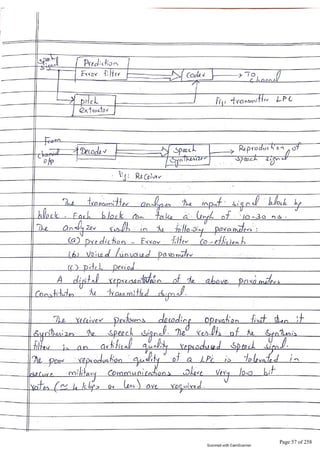 Speech signal
Prediction Error filter
Coder
To channel
pitch extractor
Fig: transmitter LPC
From channel o/p
Decoder
Speech Synthesizer
Reproduction of speech signal
Fig: Receiver
The transmitter analyses the input signal block by
block. Each block can take a length of 10-30 ms.
The analyzer results in the following parameters:
(a) prediction - Error filter co-efficients
(b) voiced / unvoiced parameter
(c) pitch period
A digital representation of the above parameters
Constitutes the transmitted signal.
The receiver performs decoding operation first then it
Synthesizes the speech signal. The results of the Synthesis
filter is an artificial quality reproduced Speech signal.
The poor reproduction quality of a LPC is tolerated in
secure military communications where very low bit
rates (≈ 4 kbps or less) are required.
Scanned with CamScanner
Page 57 of 258